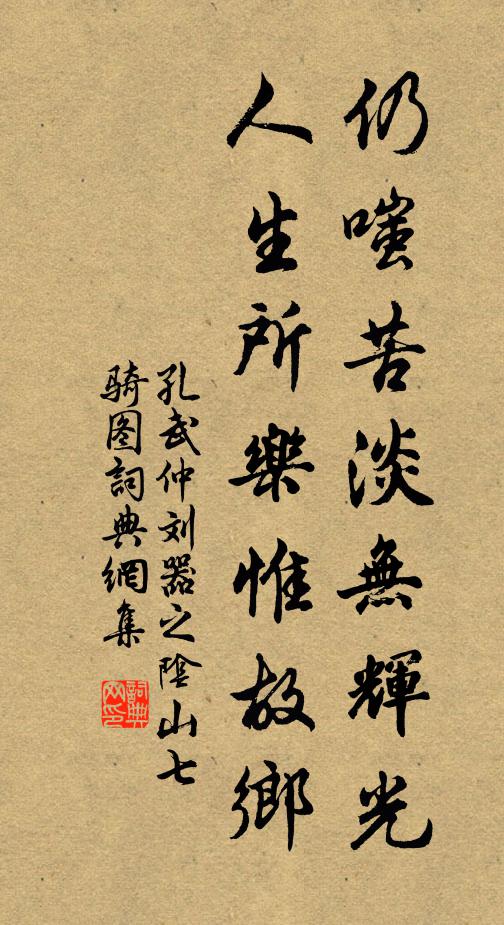 仍嗤苦淡無輝光
人生所樂惟故鄉
孔武仲刘器之陰山七
騎图詞典網集
詞典网印